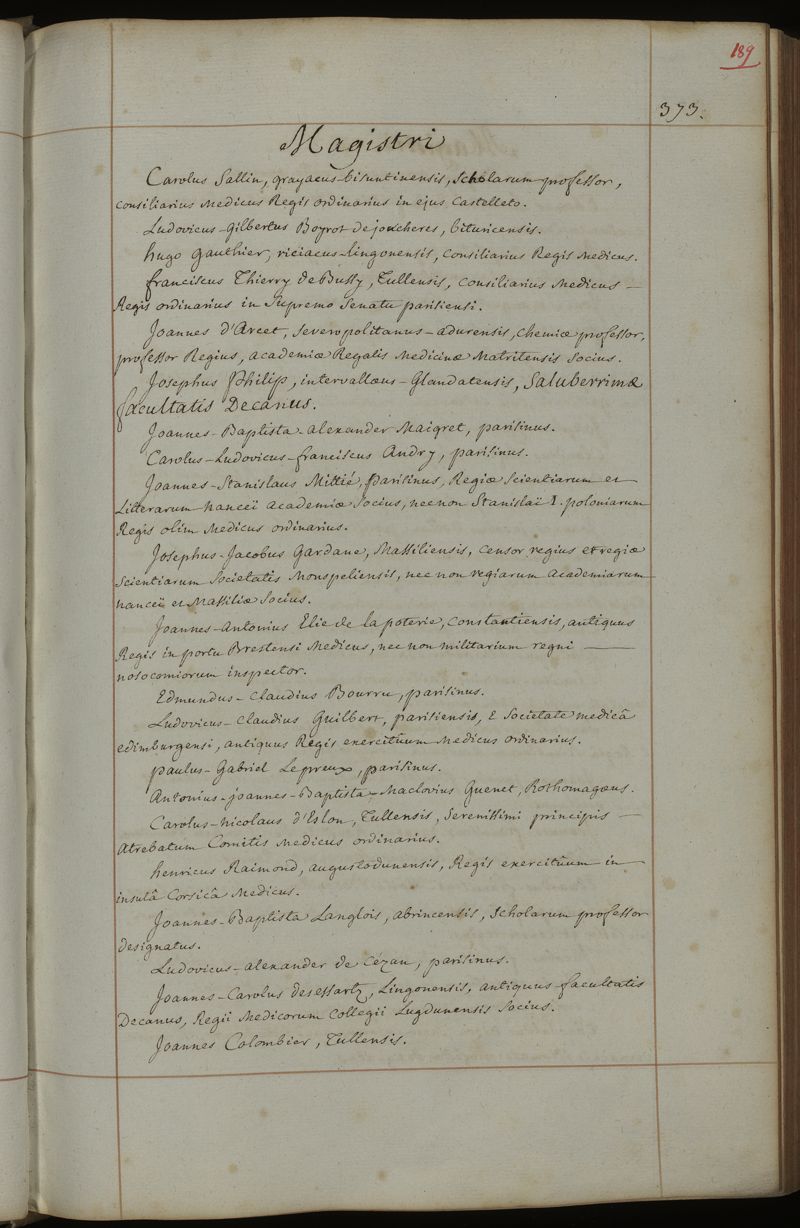 189
373.
Magistri
Carolus Sallin, grayacus-bisuntinensis, scholarum professor,
consiliarius Medicus Regis ordinarius in ejus Castelleto.
Ludovicus-Gilbertus Boyrot dejoncheres, bituricensis.
hugo Gauthier, riciacus-lingonensis, Consiliarius Regis Medicus.
franciscus Thierry de Bussy, Tullensis, Consiliarius Medicus —
Regis ordinarius in Supremo Senatu parisiensi.
Joannes d'Arcet, severopolitanus-adurensis, chemiæ professor,
professor Regius, academiæ Regalis Medicinæ Matritensis Socius.
Josephus Philip, intervallæus-Glandatensis, Saluberrimæ
facultatis Decanus.
Joannes-Baptista-alexander Maigret, parisinus.
Carolus-Ludovicus-franciscus Andry, parisinus.
Joannes-Stanislaus Mittié, parisinus, Regiæ Scientiarum et
Litterarum nanceii academiæ Socius, necnon Stanislaï I. poloniarum
Regis olim Medicus ordinarius.
Josephus-Jacobus Gardane, Massiliensis, censor regius et regiæ
Scientiarum Societatis Monspeliensis, nec non regiarum academiarum
nanceii et Massiliæ Socius.
Joannes-Antonius Elie de la poterie, Constantiensis, antiquus
Regis in portu Brestensi Medicus, nec non militarium regni —
nosocomiorum inspector.
Edmundus-Claudius Bourru, parisinus.
Ludovicus-Claudius Guilbert, parisiensis, E Societate medicâ
edimburgensi, antiquus Regis exercituum Medicus ordinarius.
paulus-Gabriel Lepreux, parisinus.
Antonius-joannes-Baptista-Maclovius Guenet, Rothomagæus.
Carolus-nicolaus d'Eslon, Tullensis, Serenissimi principis —
Atrebatum Comitis Medicus ordinarius.
henricus Raimond, augustodunensis, Regis exercituum in
insulâ Corsicâ Medicus.
Joannes-Baptista Langlois, abrincensis, Scholarum professor
designatus.
Ludovicus-alexander de Cézan, parisinus.
Joannes-Carolus desessartz, Lingonensis, antiquus facultatis
Decanus, Regii Medicorum Collegii Lugdunensis Socius.
Joannes Colombier, Tullensis.